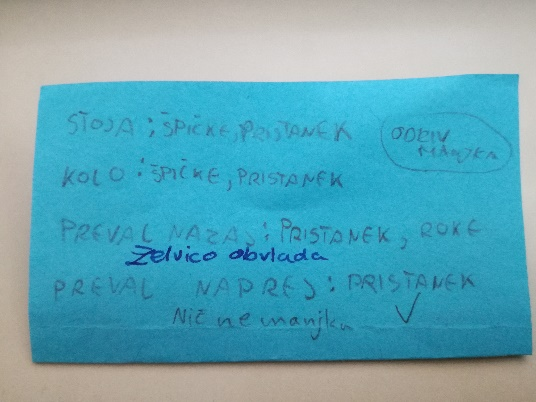 STOJA: ŠPIČKE, PRISTANEK
ODRIV
MANJKA
KOLO: ŠPIČKE, PRISTANEK
PREVAL NAZAJ: PRISTANEK, ROKE
Želvico obvlada
PREVAL NAPREJ: PRISTANEK
Nič ne manjka ✓